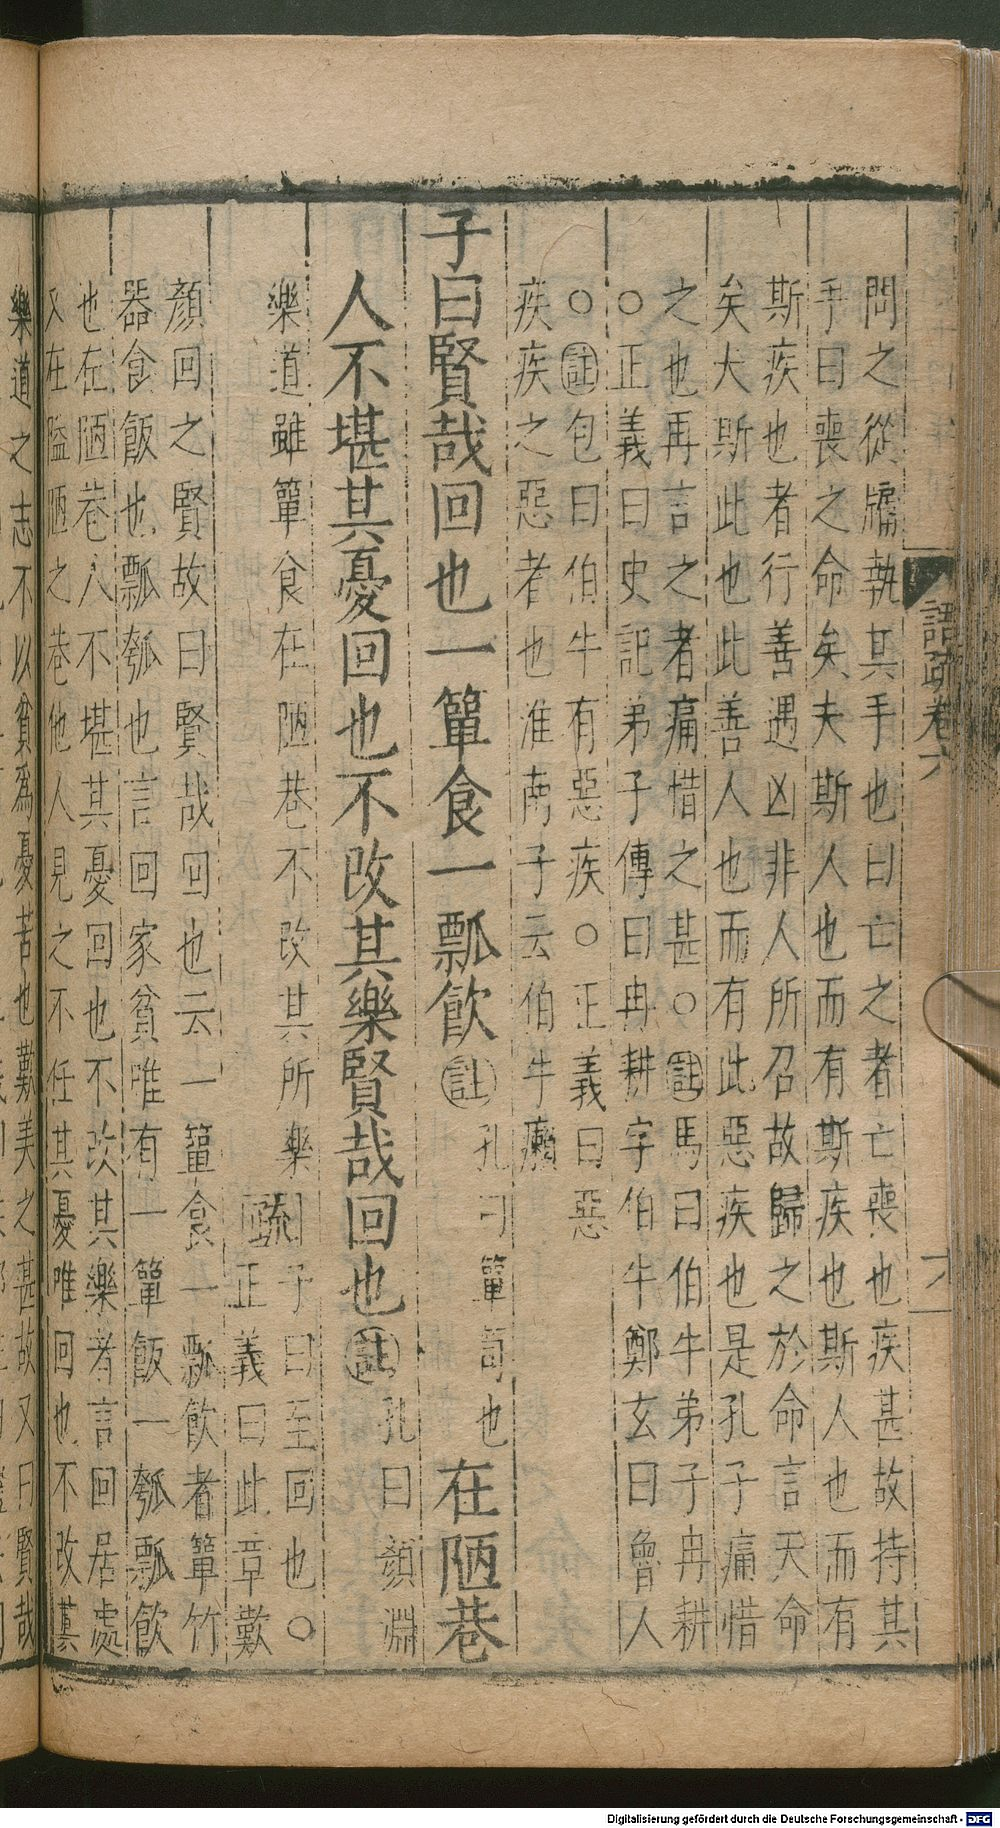 問之從牖執其手也曰亡之者亡喪也疾甚故持其
手曰喪之命矣夫斯人也而有斯疾也斯人也而有
斯疾也者行善遇凶非人所召故歸之於命言天命
矣夫斯此也此善人也而有此惡疾也是孔子痛惜
之也再言之者痛惜之甚○註馬曰伯牛弟子冉耕
○正義曰史記弟子傳曰冉耕字伯牛鄭玄曰魯人
○註包曰伯牛有惡疾○正義曰惡
疾疾之惡者也淮南子云伯牛癩
子曰賢哉回也一簞食一瓢飲註孔曰簞笥也在陋巷
人不堪其憂回也不改其樂賢哉回也註孔曰顏淵
樂道雖簞食在陋巷不改其所樂疏子曰至回也○
正義曰此章歎
顏回之賢故曰賢哉回也云一簞食一瓢飲者簞竹
器食飯也瓢瓠也言回家貧唯有一簞飯一瓠瓢飲
也在陋巷人不堪其憂回也不改其樂者言回居處
又在隘陋之巷他人見之不任其憂唯回也不改其
樂道之志不以貧為憂苦也歎美之甚故又曰賢哉
語疏卷六
Digitalisierung gefördert durch die Deutsche Forschungsgemeinschaft - DFG